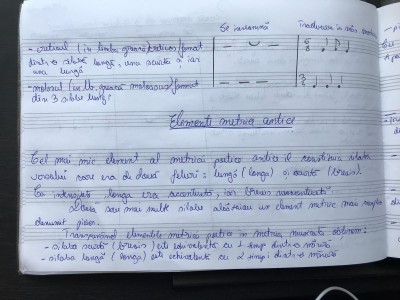 Se însemnă    Traducerea în măs. modernă
- creticul (în limba greacă creticos) format
dintr-o silabă lungă, una scurtă și iar
una lungă
- molosul (în lb. greacă molossus) format
din 3 silabe lungi
Elemente metrice antice
Cel mai mic element al metricii poetice antice îl constituia silaba
versului care era de două feluri: lungă (longa) și scurtă (brevis).
longa era accentuată, iar brevis neaccentuată.
Două sau mai multe silabe alcătuiau un element metric mai complex
denumit picior.
Transpunând elementele metricii poetice în metrica muzicală obținem:
- silaba scurtă (brevis) este echivalentă cu 1 timp dintr-o măsură
- silaba lungă (longa) este echivalentă cu 2 timpi dintr-o măsură